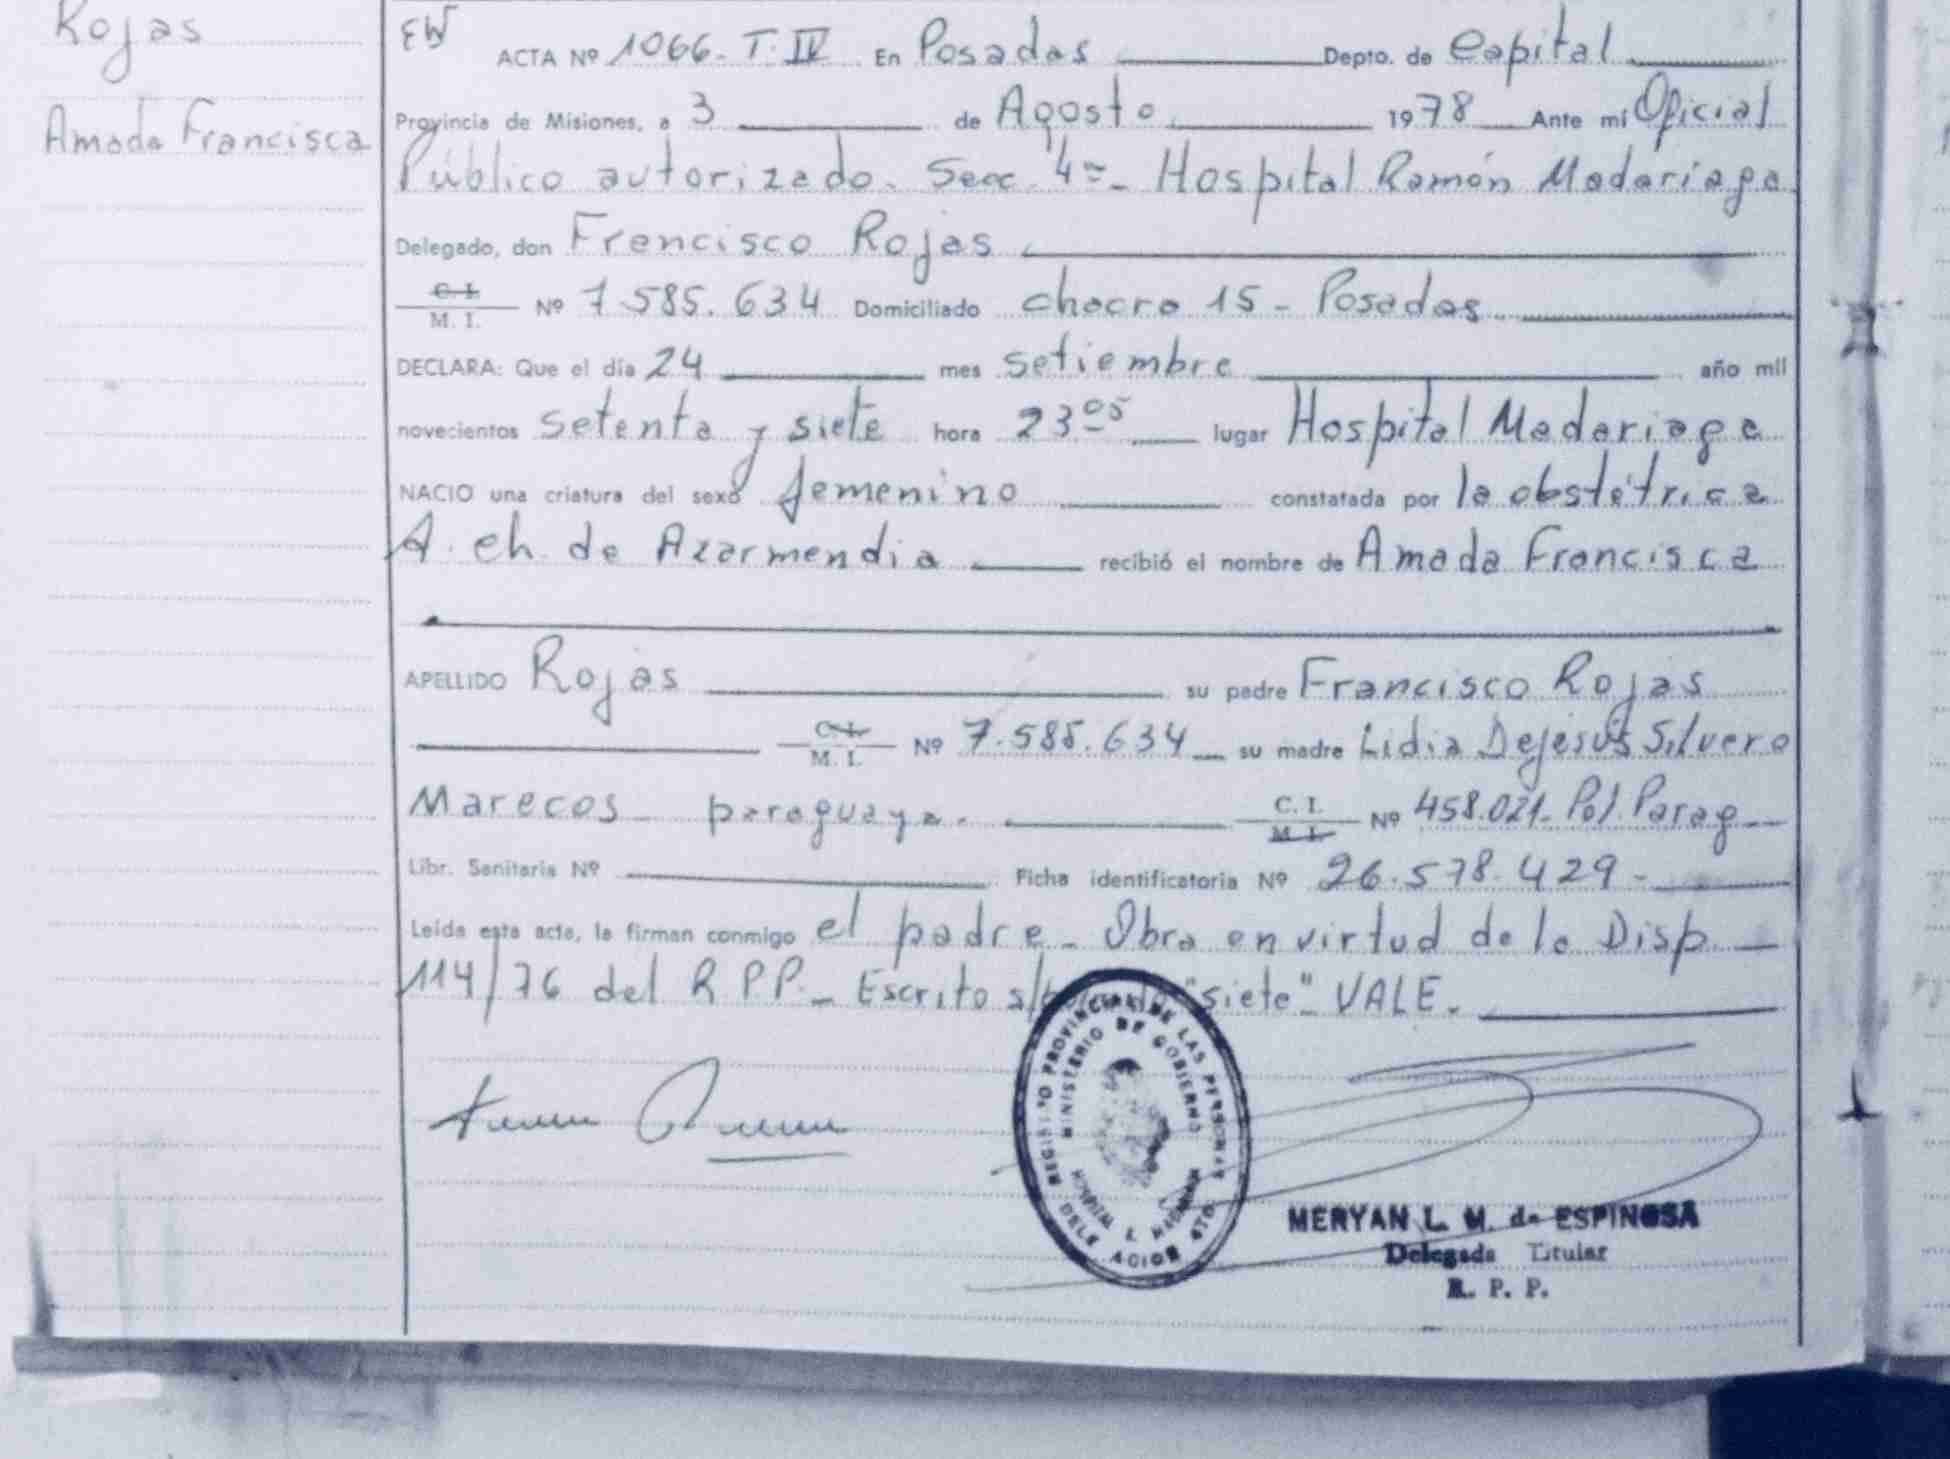 Rojas
Amada Francisca
EW ACTA Nº 1066 - T. IV En Posadas Depto. de Capital
Provincia de Misiones, a 3 de Agosto 1978 Ante mí Oficial
Público autorizado. Secc. 4ª - Hospital Ramón Madariaga
Delegado, don Francisco Rojas
C. I. M. I. Nº 7.585.634 Domiciliado chacra 15 - Posadas
DECLARA: Que el día 24 mes setiembre año mil
novecientos setenta y siete hora 23 05 lugar Hospital Madariaga
NACIO una criatura del sexo femenino constatada por la obstétrica
A. ch. de Azarmendia recibió el nombre de Amada Francisca
APELLIDO Rojas su padre Francisco Rojas
C. I. M. I. Nº 7.585.634 su madre Lidia Dejesús Silvero
Marecos - paraguaya. C. I. M. I. Nº 458.021 - Pol. Parag
Libr. Sanitaria Nº Ficha identificatoria Nº 26.578.429 -
Leída esta acta, la firman conmigo el padre - Obra en virtud de la Disp
114/76 del R P P. - Escrito s/ "siete" - VALE.
REGISTRO PROVINCIAL DE LAS PERSONAS
MINISTERIO DE GOBIERNO
HOSPITAL
DELEGACION
MERYAN L. M. de ESPINOSA
Delegada Titular
R. P. P.